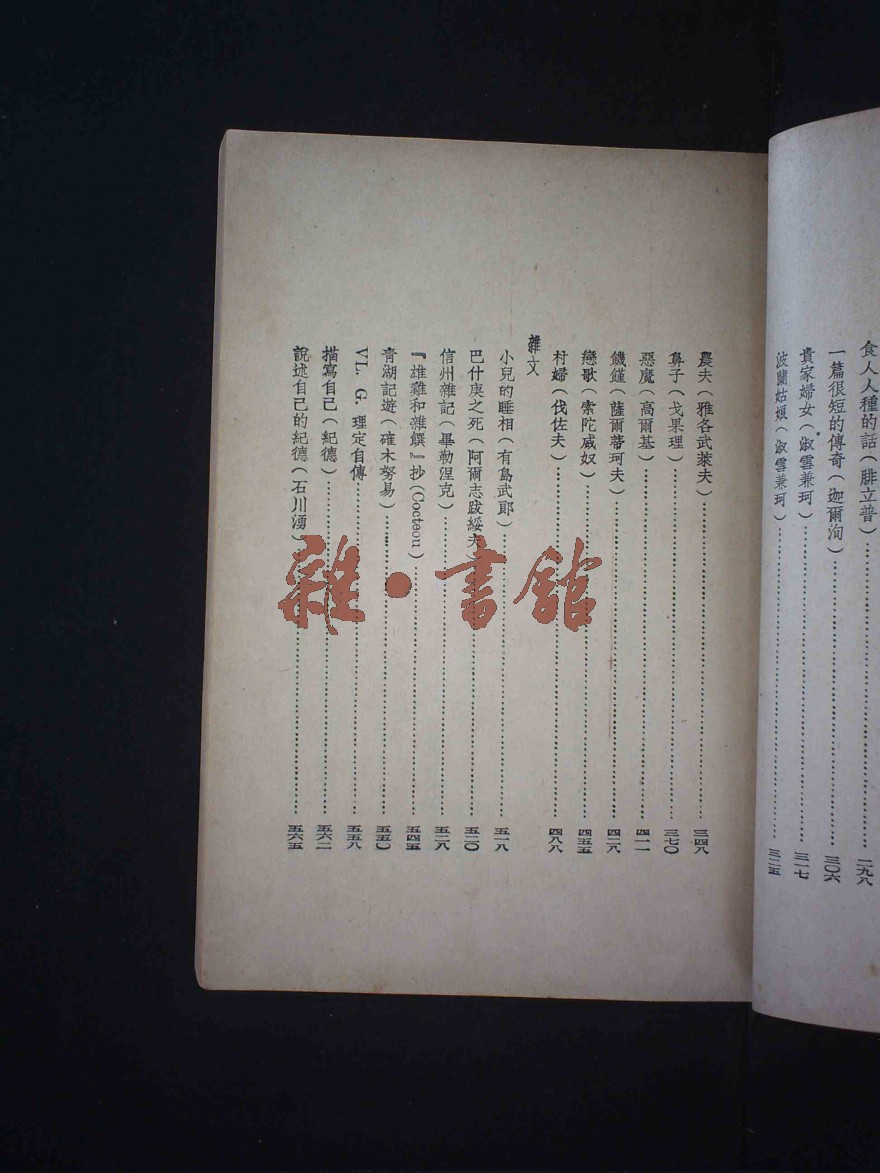 食人人種的話（腓立普）……二九八
一篇很短的傳奇（迦爾洵）……三〇六
貴家婦女（淑雪兼珂）……三一七
波蘭姑娘（淑雪兼珂）……三二五
農夫（雅各武萊夫）……三四八
鼻子（戈果理）……三七〇
惡魔（高爾基）……四一一
饑饉（薩爾蒂珂夫）……四二八
戀歌（索陀威奴）……四五五
村婦（伐佐夫）……四八八
雜文
小兒的睡相（有島武郎）……五一八
巴什庚之死（阿爾志跋綏夫）……五二〇
信州雜記（畢勒涅克）……五二八
『雄雞和雜饌』抄（Cocteou）……五四五
青湖記遊（確木努易）……五五〇
VL. G. 理定自傳……五五八
描寫自己（紀德）……五六二
說述自己的紀德（石川湧）……五六五
雜·書館